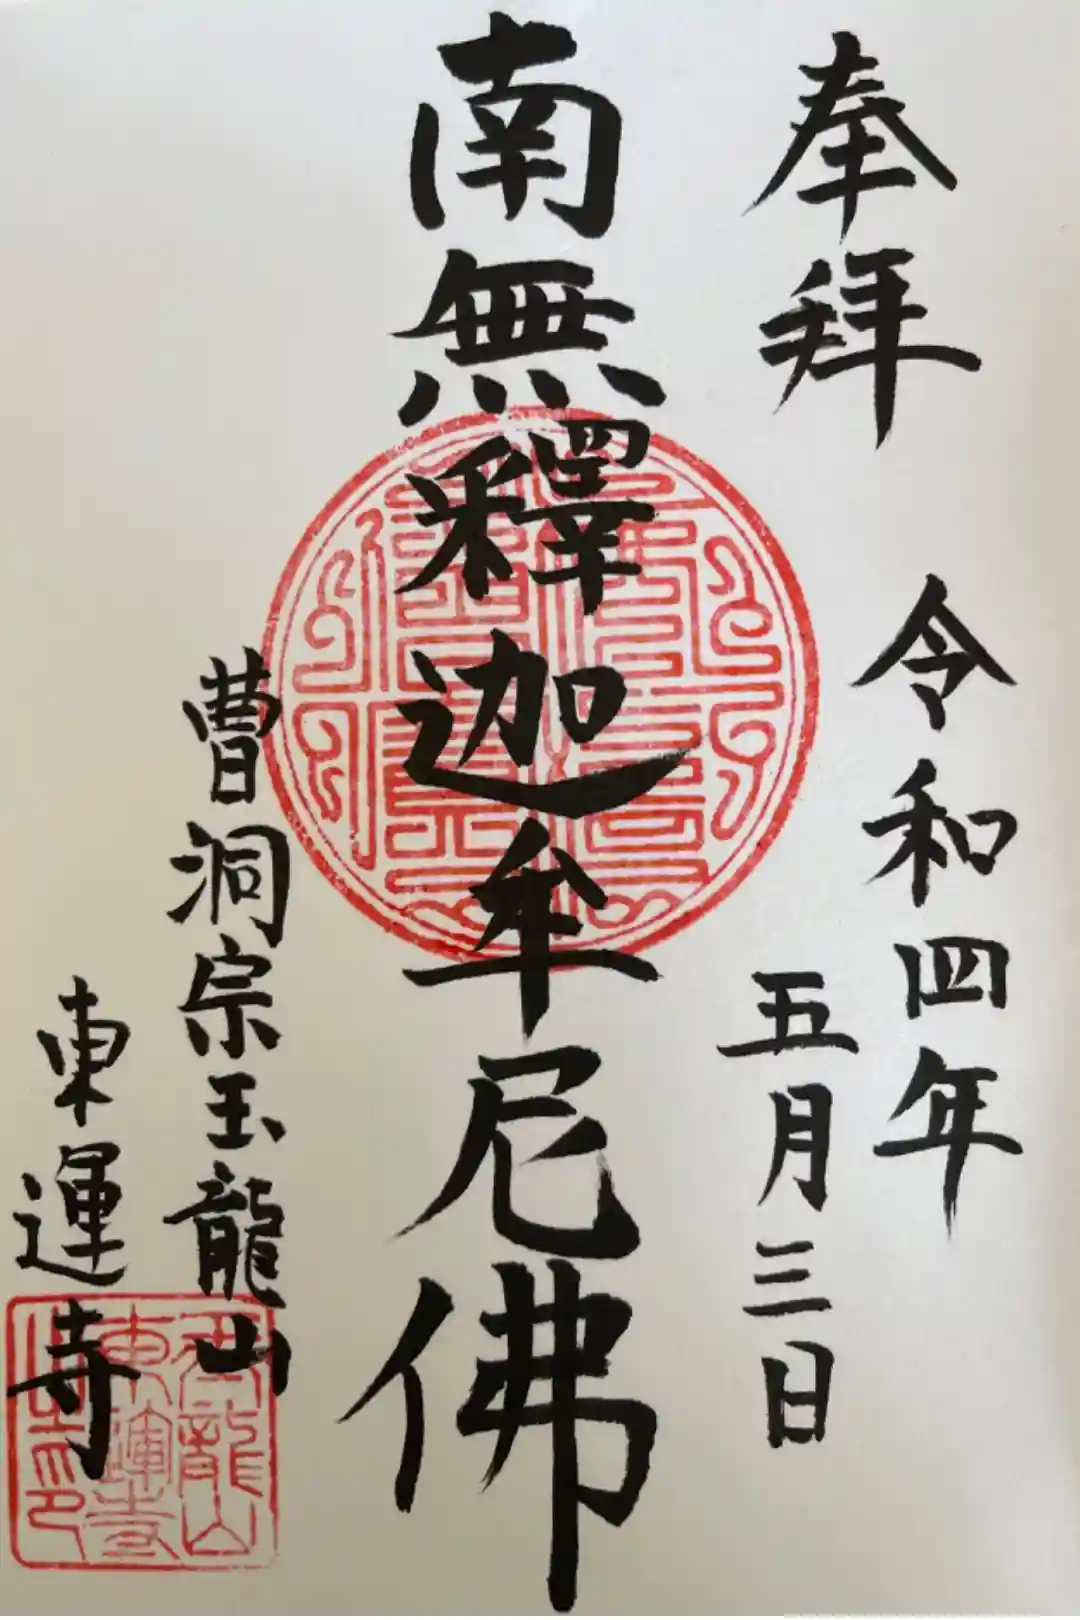 奉拝
令和四年
五月三日
南無釋迦牟尼佛
曹洞宗玉龍山
東運寺
玉龍山
東運寺
之印